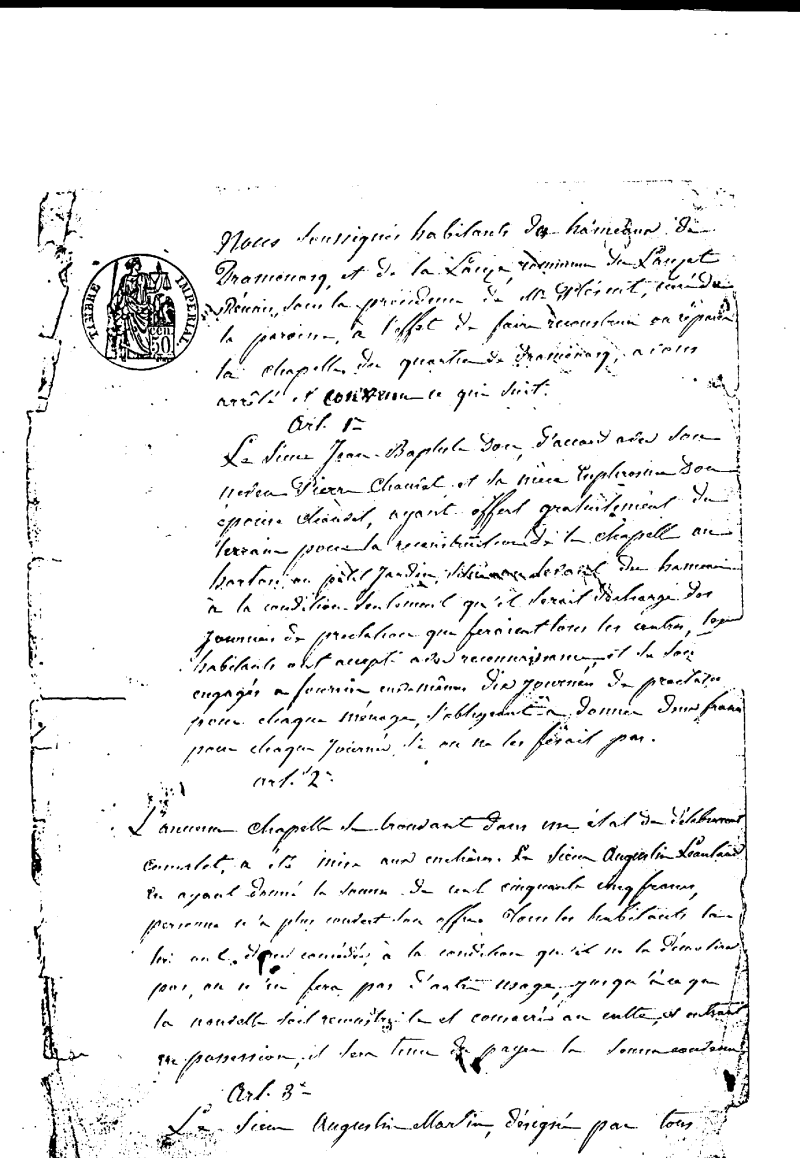 TIMBRE IMPERIAL
CEN 50
Nous soussignés habitants du hameau de
et de la commune du Lauzet
sous la présidence de Mr curé de
la paroisse, à l'effet de faire reconstruire ou réparer
la chapelle du quartier de avons
arrêté et convenu ce qui suit.
Art. 1er
Le Sieur Jean Baptiste Dou, d'accord avec son
neveu Pierre et sa nièce Euphrosine Dou
épouse ayant offert gratuitement du
terrain pour la reconstruction de la chapelle au
ou petit jardin, devant du hameau
à la condition seulement qu'il serait déchargé des
journées de prestation que feraient tous les autres,
habitants ont accepté avec reconnaissance, et se sont
engagés a fournir dix journées de prestation
pour chaque ménage, s'obligeant à donner deux francs
pour chaque journée si on ne les ferait pas.
Art. 2e
L'ancienne chapelle se trouvant dans un état de délabrement
complet, a été mise aux enchères. Le Sieur Augustin
en ayant donné la somme de cent cinquante cinq francs,
personne n'a plus couvert son offre. Tous les habitants la
lui ont donc concédée, à la condition qu'il ne la démolira
pas, ou n'en fera pas d'autre usage, jusqu'à ce que
la nouvelle soit reconstruite et consacrée au culte, et entrant
en possession, il sera tenu de payer la somme convenue
Art. 3e
Le Sieur Augustin Martin, désigné par tous